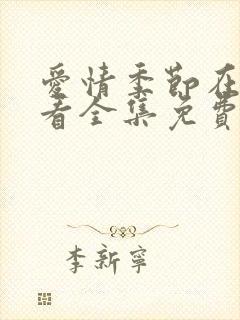 愛情季節在
看全集免費
李新寧